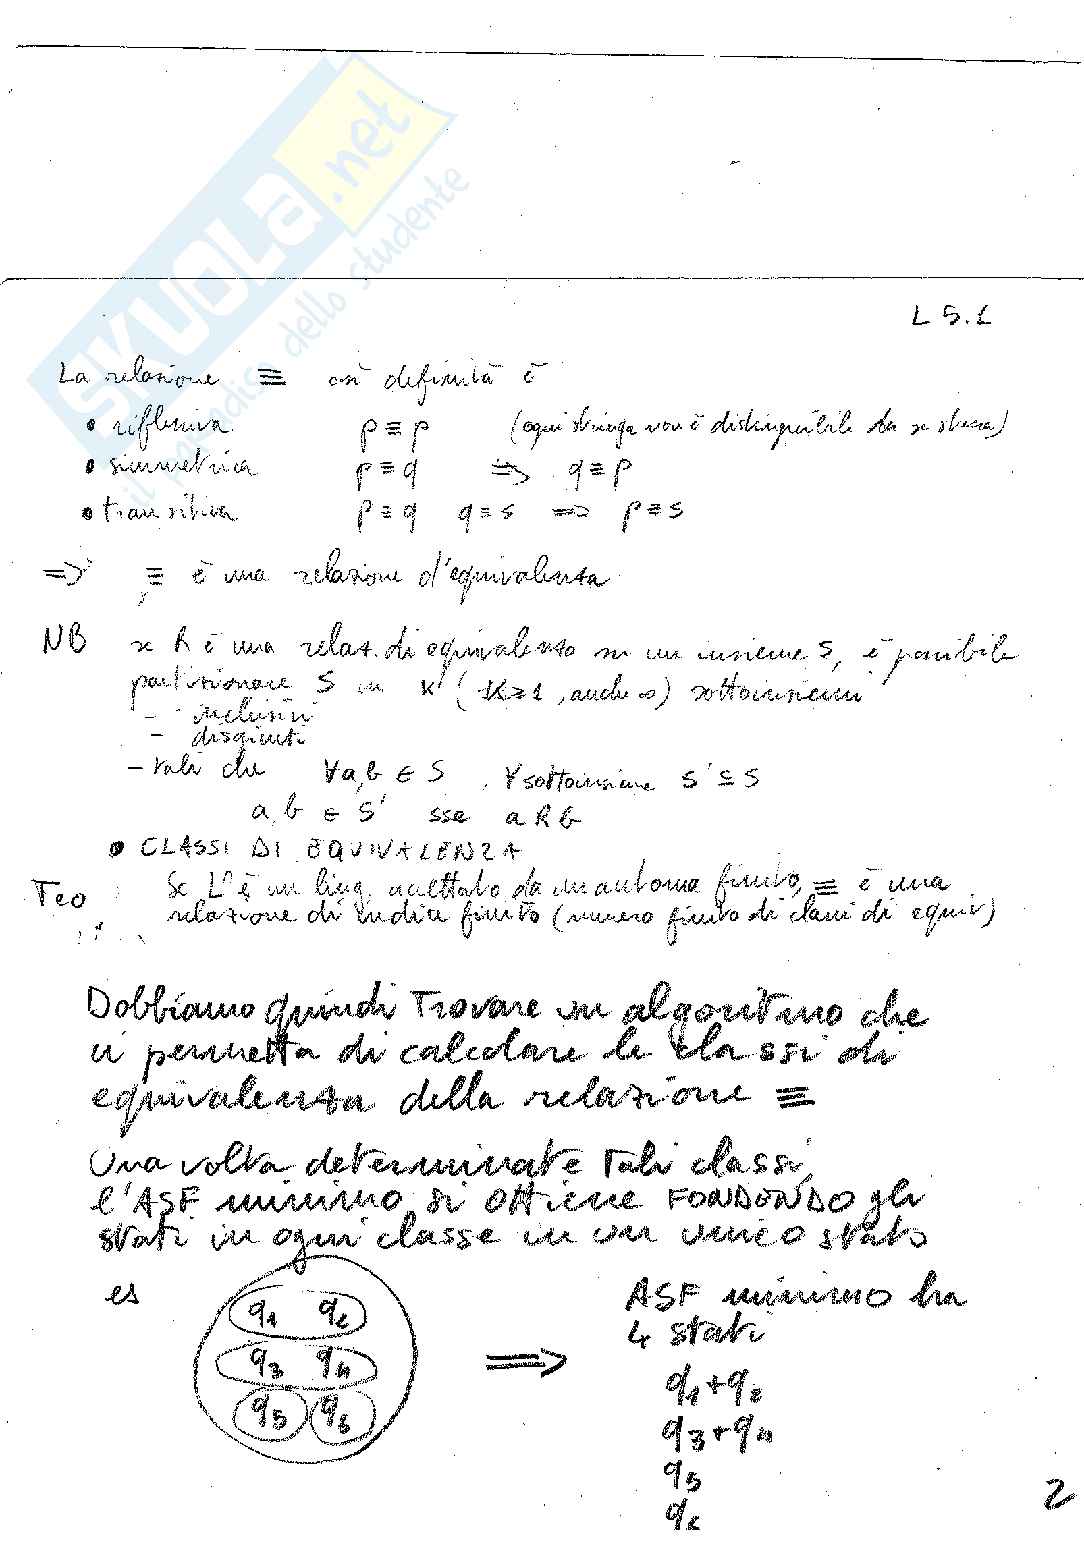 SKUOLA.net
il paradiso dello studente
L 5.1
La relazione ≡ così definita è
• riflessiva p ≡ p (ogni stringa non è distinguibile da se stessa)
• simmetrica p ≡ q => q ≡ p
• transitiva p ≡ q q ≡ s => p ≡ s
=> ≡ è una relazione d'equivalenza
NB se R è una relaz. di equivalenza su un insieme S, è possibile
partizionare S in K (K≥1, anche ∞) sottoinsiemi
-
- disgiunti
- tali che ∀a,b ∈ S ∀ sottoinsieme S' ⊆ S
a,b ∈ S' sse a R b
• CLASSI DI EQUIVALENZA
Teo Se L è un ling. accettato da un automa finito, ≡ è una
relazione di indice finito (numero finito di classi di equiv)
Dobbiamo quindi Trovare un algoritmo che
ci permetta di calcolare le classi di
equivalenza della relazione ≡
Una volta determinate Tali classi,
l'ASF minimo si ottiene FONDENDO gli
stati in ogni classe in un unico stato
es q1 q2 ASF minimo ha
q3 q4 => 4 stati
q5 q6 q1+q2
q3+q4
q5
q6
2